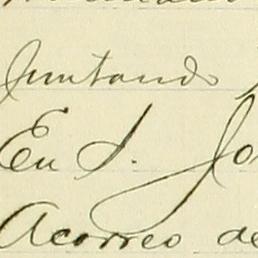 Juntando
Eu J. Jo
Acorreo de